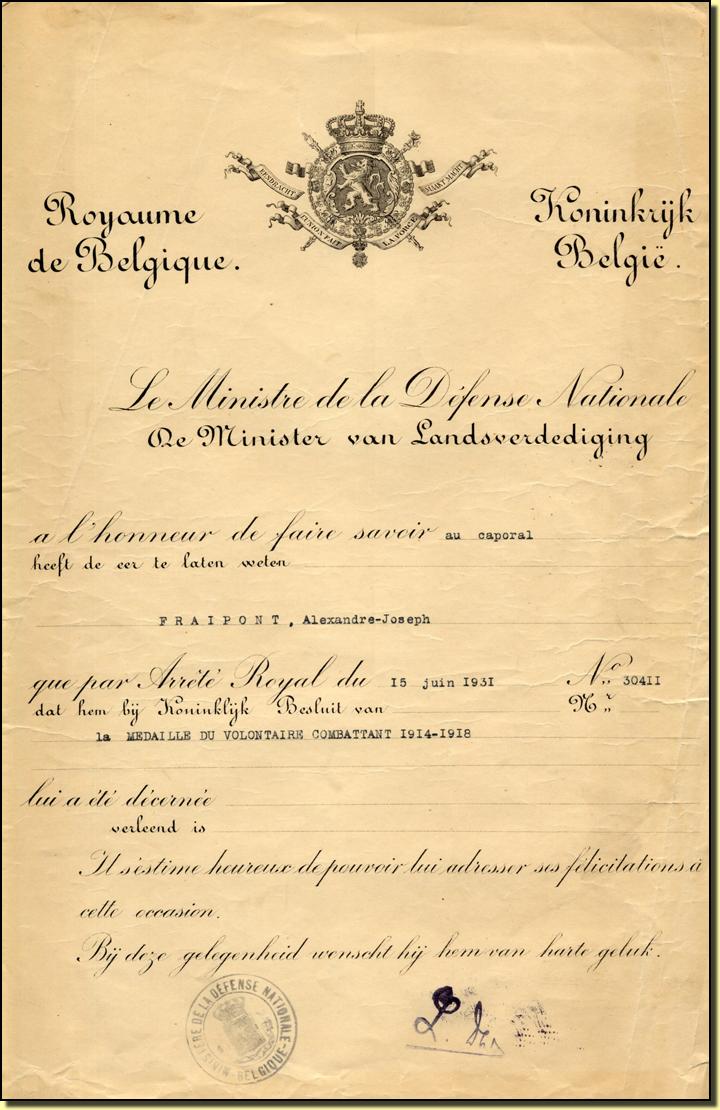 EENDRACHT MAAKT MACHT
L'UNION FAIT LA FORCE
Royaume
de Belgique.
Koninkrijk
België.
Le Ministre de la Défense Nationale
De Minister van Landsverdediging
a l'honneur de faire savoir au caporal
heeft de eer te laten weten
FRAIPONT, Alexandre-Joseph
que par Arrêté Royal du 15 juin 1931 No 30411
dat hem bij Koninklijk Besluit van Nr
la MEDAILLE DU VOLONTAIRE COMBATTANT 1914-1918
lui a été décernée
verleend is
Il s'estime heureux de pouvoir lui adresser ses félicitations à
cette occasion.
Bij deze gelegenheid wenscht hij hem van harte geluk.
MINISTÈRE DE LA DÉFENSE NATIONALE - BELGIQUE -